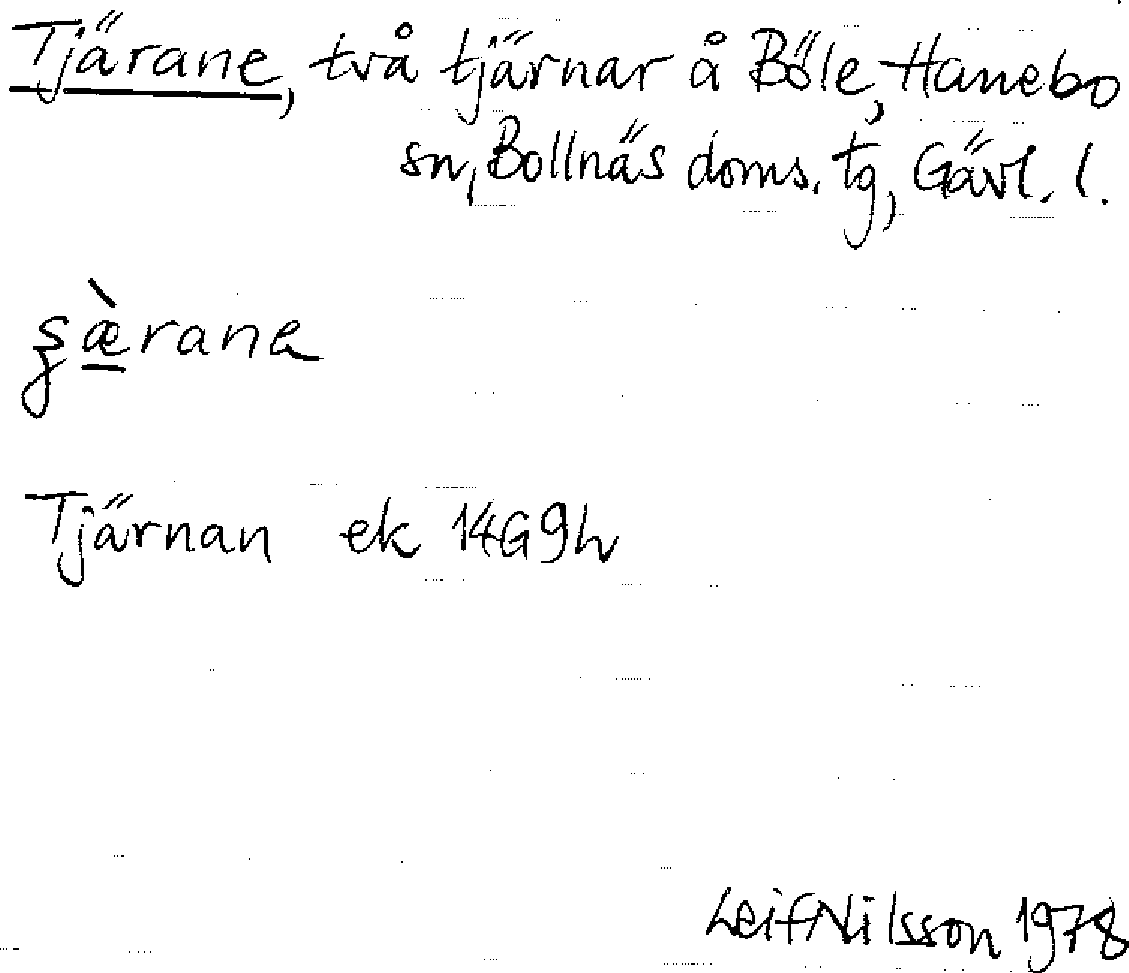 Tjärane, två tjärnar å Böle, Hanebo
sn, Bollnäs doms. tg, Gävl. l.
ʂæ̀rane
Tjärnan ek 14G9h
Leif Nilsson 1978